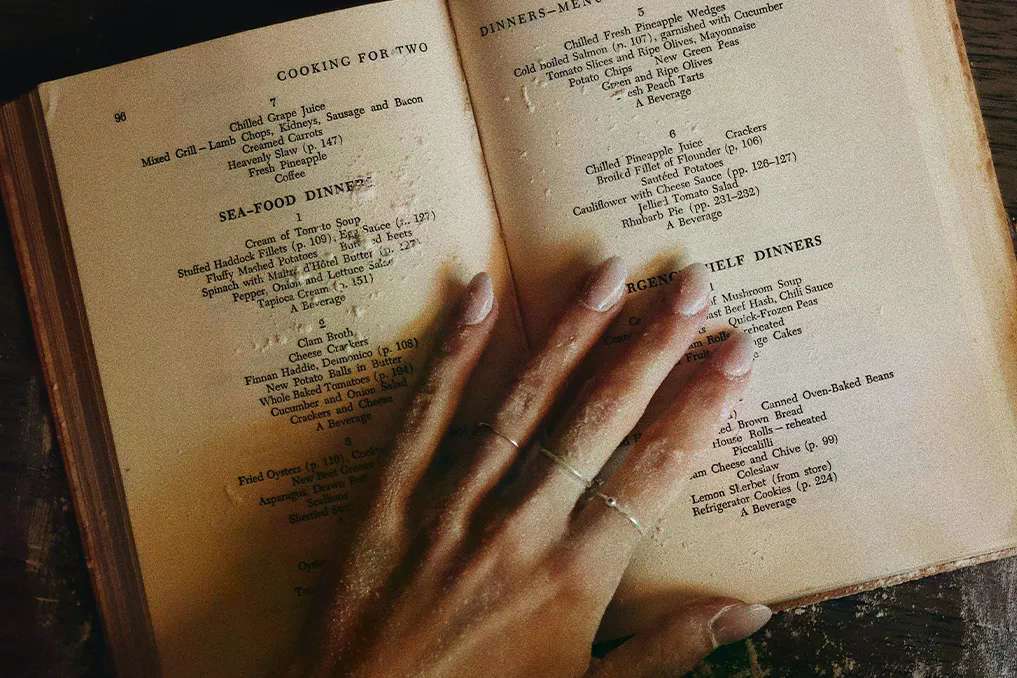 COOKING FOR TWO
96
7
Chilled Grape Juice
Mixed Grill—Lamb Chops, Kidneys, Sausage and Bacon
Creamed Carrots
Heavenly Slaw (p. 147)
Fresh Pineapple
Coffee
SEA-FOOD DINNERS
1
Cream of Tomato Soup
Stuffed Haddock Fillets (p. 109), Egg Sauce
Fluffy Mashed Potatoes Beets
Spinach with d'Hôtel Butter
Pepper, Onion and Lettuce
Tapioca Cream (p. 151)
A Beverage
2
Clam Broth
Cheese Crackers
Finnan Haddie, (p. 108)
New Potato Balls in Butter
Whole Baked Tomatoes
Cucumber and Onion Salad
Crackers and Cheese
A Beverage
Fried Oysters
Asparagus,
Scallions
DINNERS—MENU
5
Chilled Fresh Pineapple Wedges
Cold boiled Salmon (p. 107), garnished with Cucumber
Tomato Slices and Ripe Olives, Mayonnaise
Potato Chips New Green Peas
Green and Ripe Olives
esh Peach Tarts
A Beverage
6
Chilled Pineapple Juice Crackers
Broiled Fillet of Flounder (p. 106)
Sautéed Potatoes
Cauliflower with Cheese Sauce (pp. 126–127)
Jellied Tomato Salad
Rhubarb Pie (pp. 231–232)
A Beverage
RGENC HELF DINNERS
of Mushroom Soup
ast Beef Hash, Chili Sauce
Quick-Frozen Peas
Rolls reheated
Fruit ge Cakes
Canned Oven-Baked Beans
ed Brown Bread
House Rolls—reheated
Piccalilli
am Cheese and Chive (p. 99)
Coleslaw
Lemon Sherbet (from store)
Refrigerator Cookies (p. 224)
A Beverage